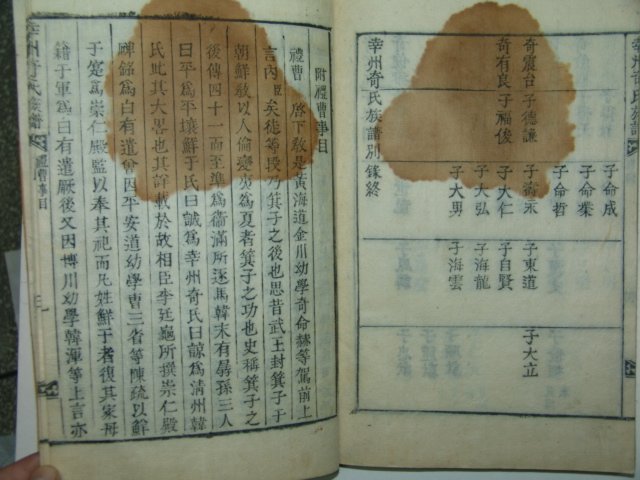 奇震台 子德謙
奇有良 子福俊
子命成
子命業
子命哲
子大仁
子大弘
子大男
子東道
子自賢
子海龍
子海雲
子大立
幸州奇氏族譜別錄終
附禮曹事目
禮曹 啓下教是黃海道金川幼學奇命赫等駕前上
言內臣矣徒等段乃箕子之後也思昔武王封箕子于
朝鮮敎以人倫變夷爲夏者箕子之功也史稱箕子之
後傳四十一而至準爲衛滿所逐馬韓末有孱孫三人
曰平爲平壤鮮于氏曰誠爲幸州奇氏曰諒爲淸州韓
氏此其大畧也其詳載於故相臣李廷龜所撰崇仁殿
碑銘爲白有遣曾因平安道幼學曹三省等陳疏以鮮
于寔爲崇仁殿監以奉其祀而凡姓鮮于者復其家毋
籍于軍爲白有遣厥後又因博川幼學韓渾等上言亦
幸州奇氏族譜 禮曹事目